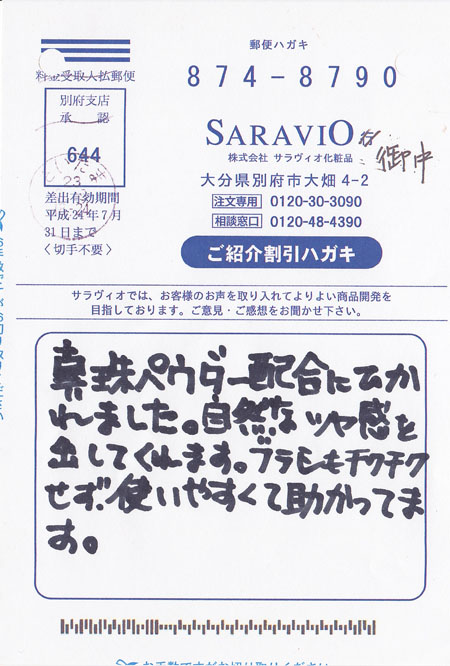 郵便ハガキ
料金受取人払郵便
874-8790
別府支店
承認
644
SARAVIO
株式会社 サラヴィオ化粧品
御中
大分県別府市大畑 4-2
注文専用 0120-30-3090
相談窓口 0120-48-4390
差出有効期間
平成24年7月
31日まで
〈切手不要〉
ご紹介割引ハガキ
サラヴィオでは、お客様のお声を取り入れてよりよい商品開発を
目指しております。ご意見・ご感想をお聞かせ下さい。
真珠ペウダー配合にひか
れました。自然なツヤ感を
出してくれます。ブラシもチクチク
せず使いやすくて助かってま
す。